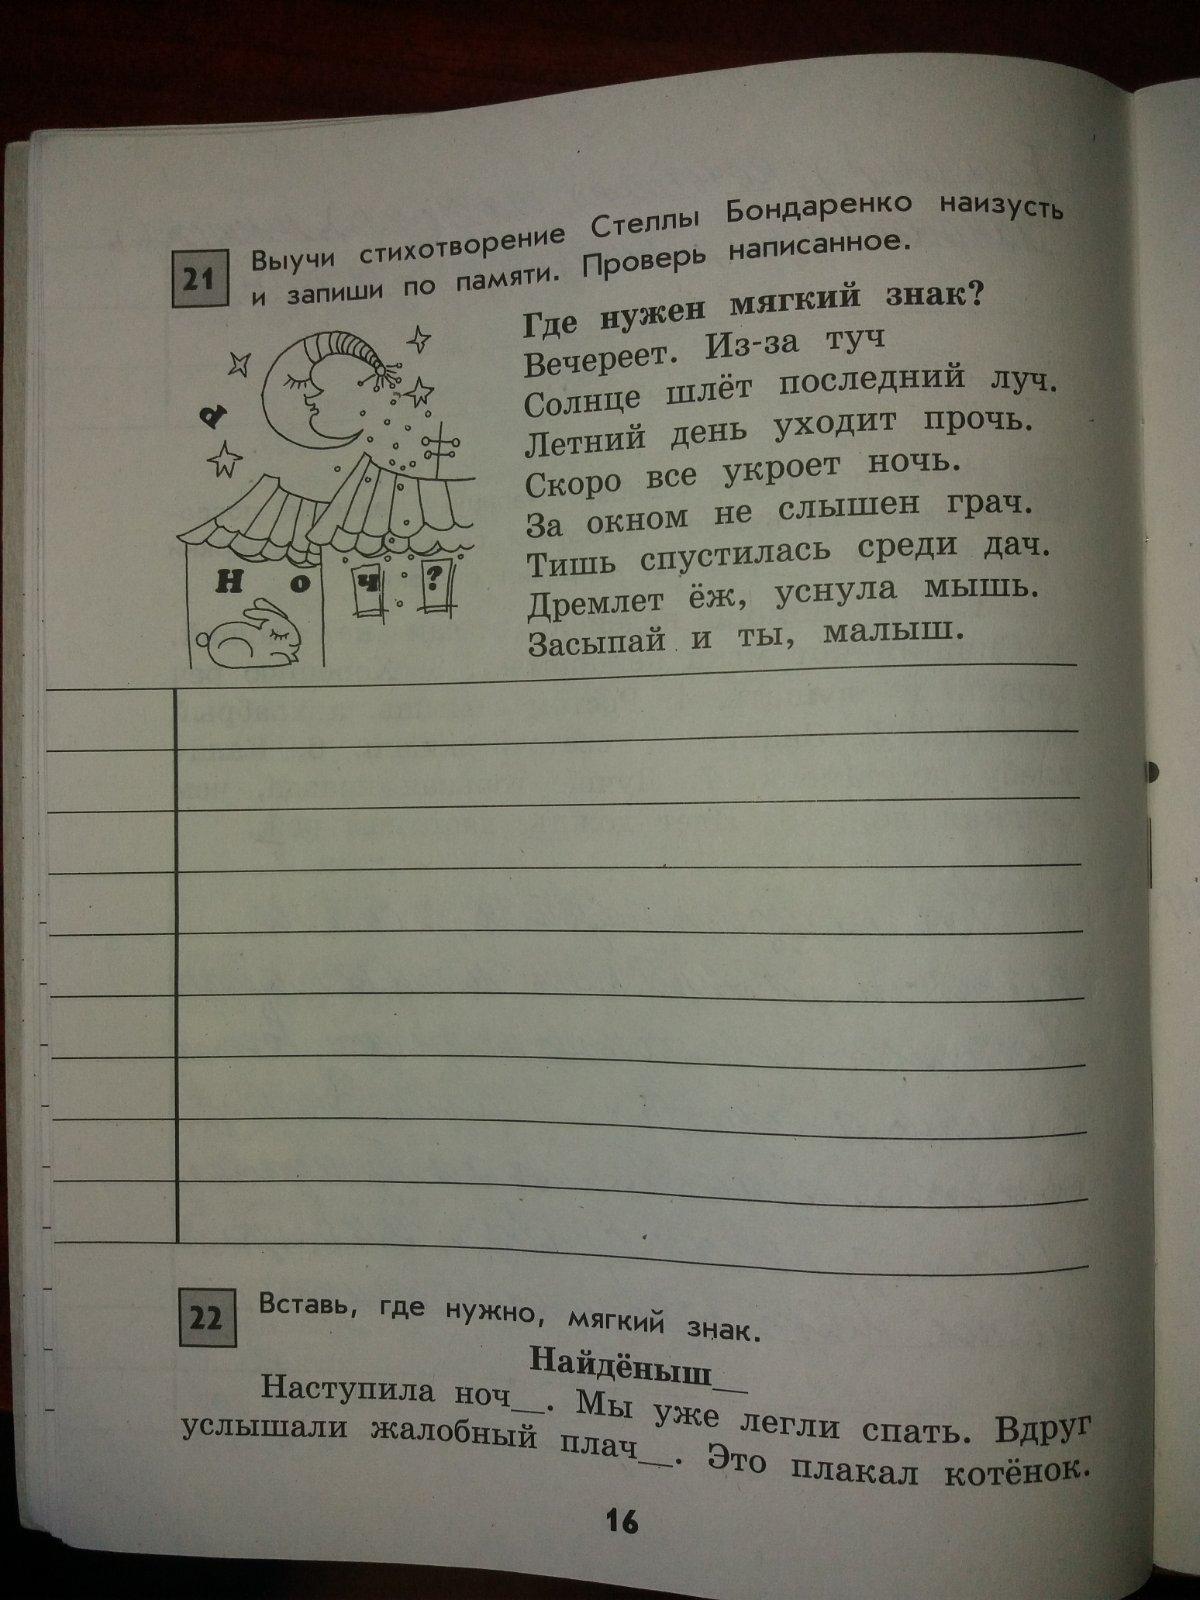 21 Выучи стихотворение Стеллы Бондаренко наизусть
и запиши по памяти. Проверь написанное.
Где нужен мягкий знак?
Вечереет. Из-за туч
Солнце шлёт последний луч.
Летний день уходит прочь.
Скоро все укроет ночь.
За окном не слышен грач.
Тишь спустилась среди дач.
Дремлет ёж, уснула мышь.
Засыпай и ты, малыш.
Н о ч ?
22 Вставь, где нужно, мягкий знак.
Найдёныш__
Наступила ноч__. Мы уже легли спать. Вдруг
услышали жалобный плач__. Это плакал котёнок.
16